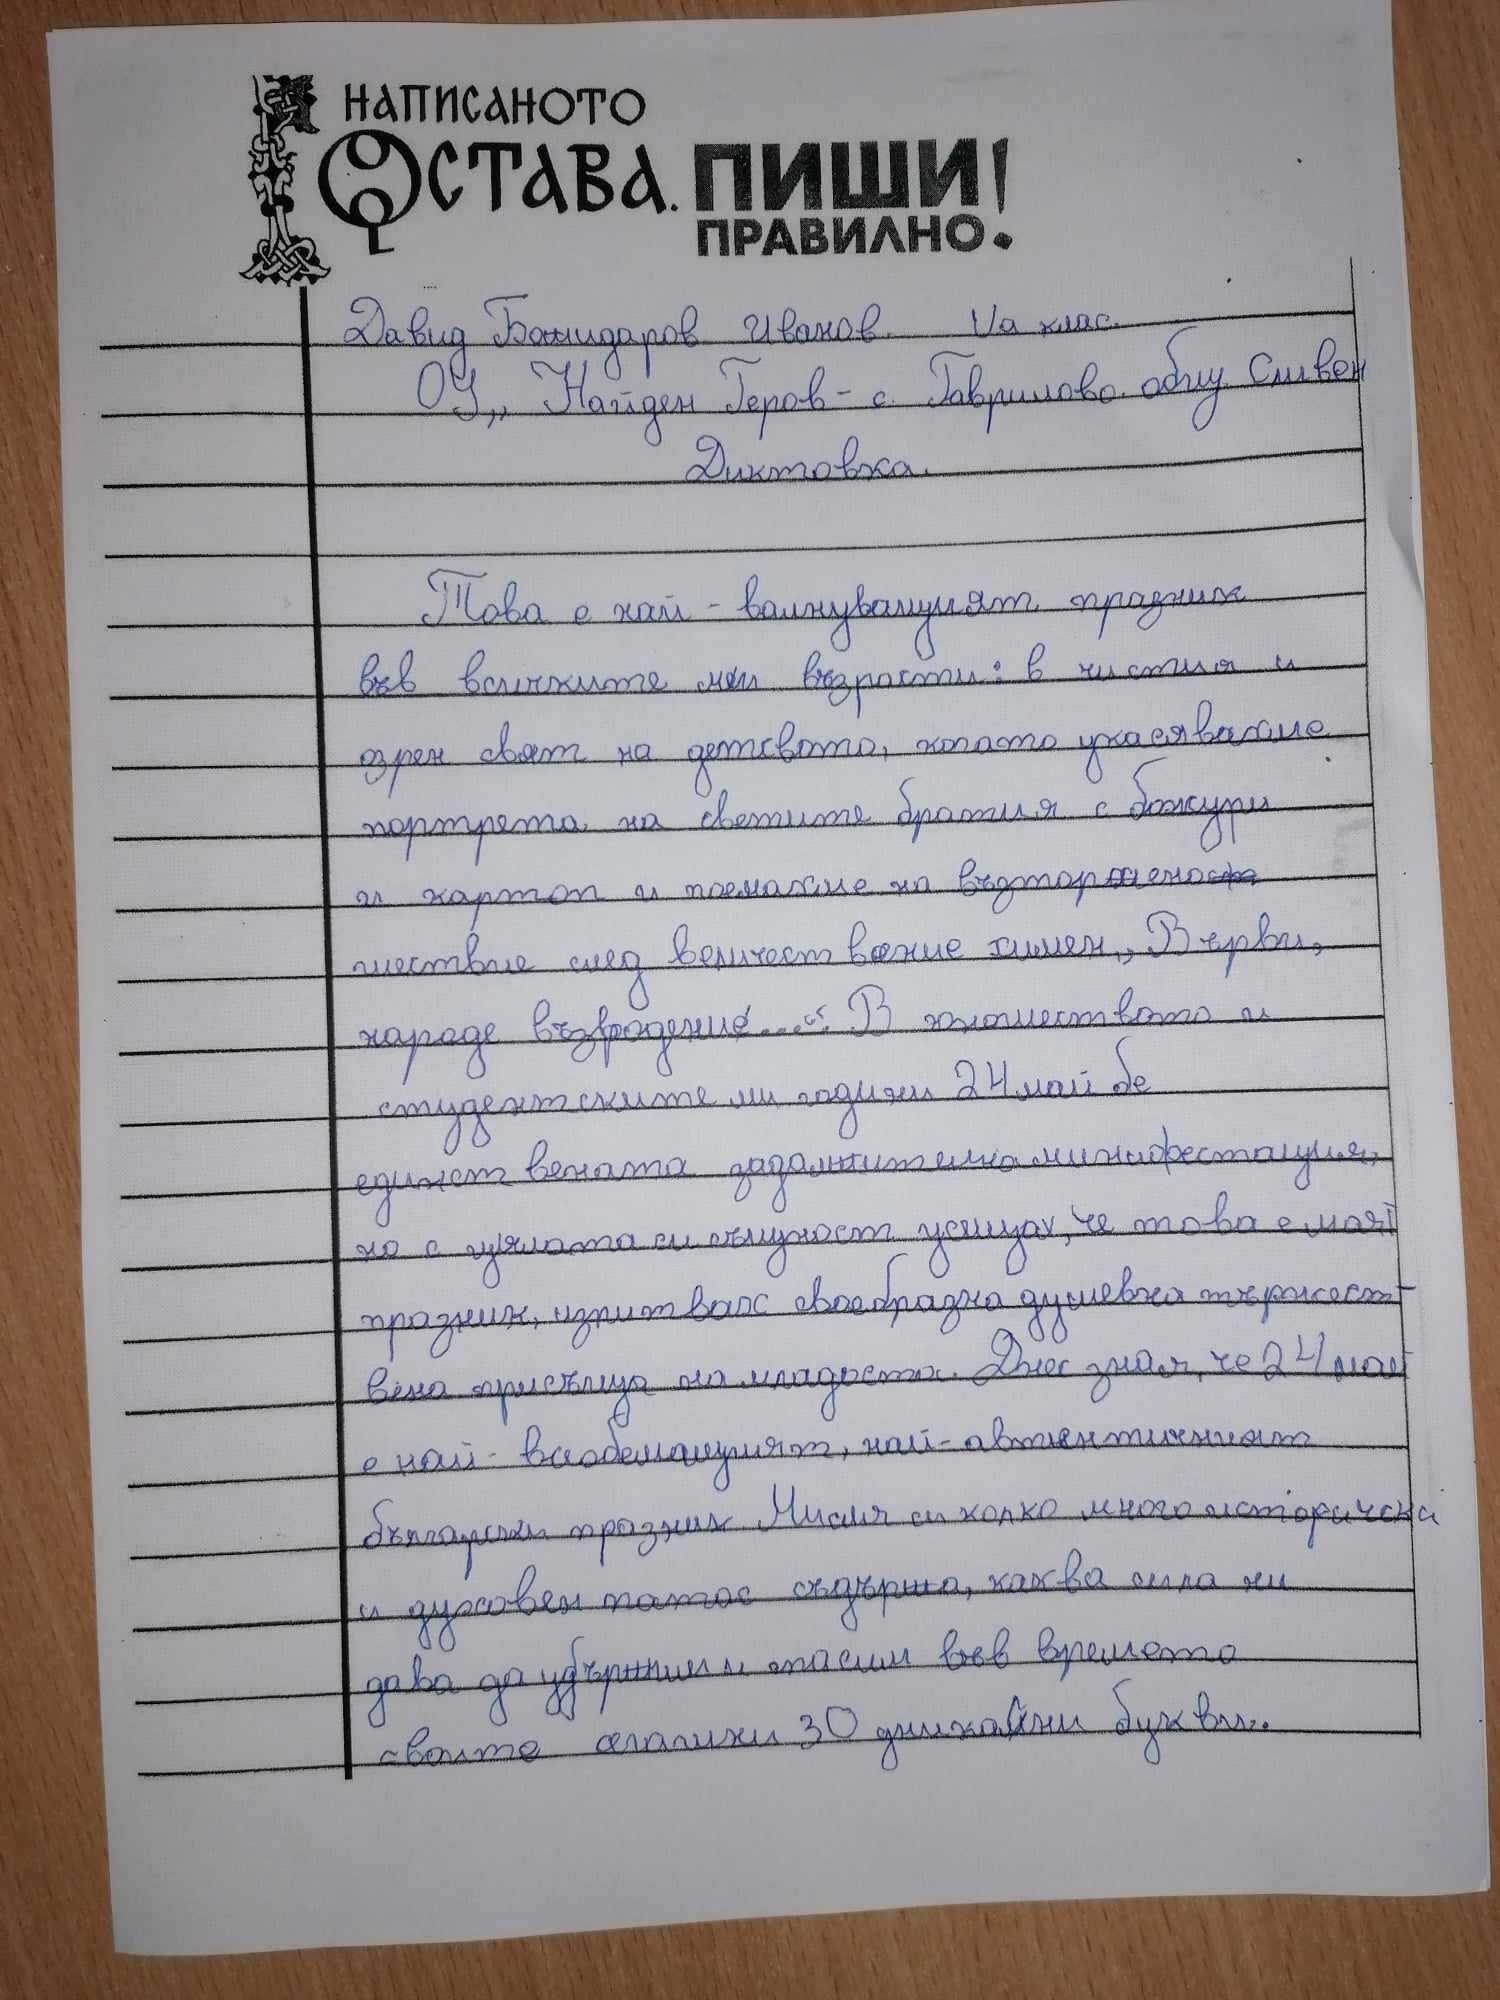 НАПИСАНОТО
ОСТАВА. ПИШИ
ПРАВИЛНО!
Давид Божидаров Иванов. Vа клас.
ОУ,, Найден Геров- с. Гаврилово. общ. Сливен
Диктовка.
Това е най - валнуващият празник
във всичките ми възрасти: в чистия и
озрен свят на детсвото, когато укасявахме
портрета на светите братия с божури
и картоп и поемахме на въдторжено
шествие след величествение химен,, Върви,
народе възврадение....“ В юношеството и
студентските ми години 24 май бе
единствената задалжителна минифестация,
но с цялата си същност усещах, че това е моят
празник, изпитвах своебразна душевна тържест-
вена присъща на младоста. Днес зная, че 24 май
е най- всеобемащият, най- автентичният
български празник Мисля си колко много исторически
и духовен патос съдържа, каква сила ни
дава да удържим и спасим във времето
своите сегашни 30 уникални букви..